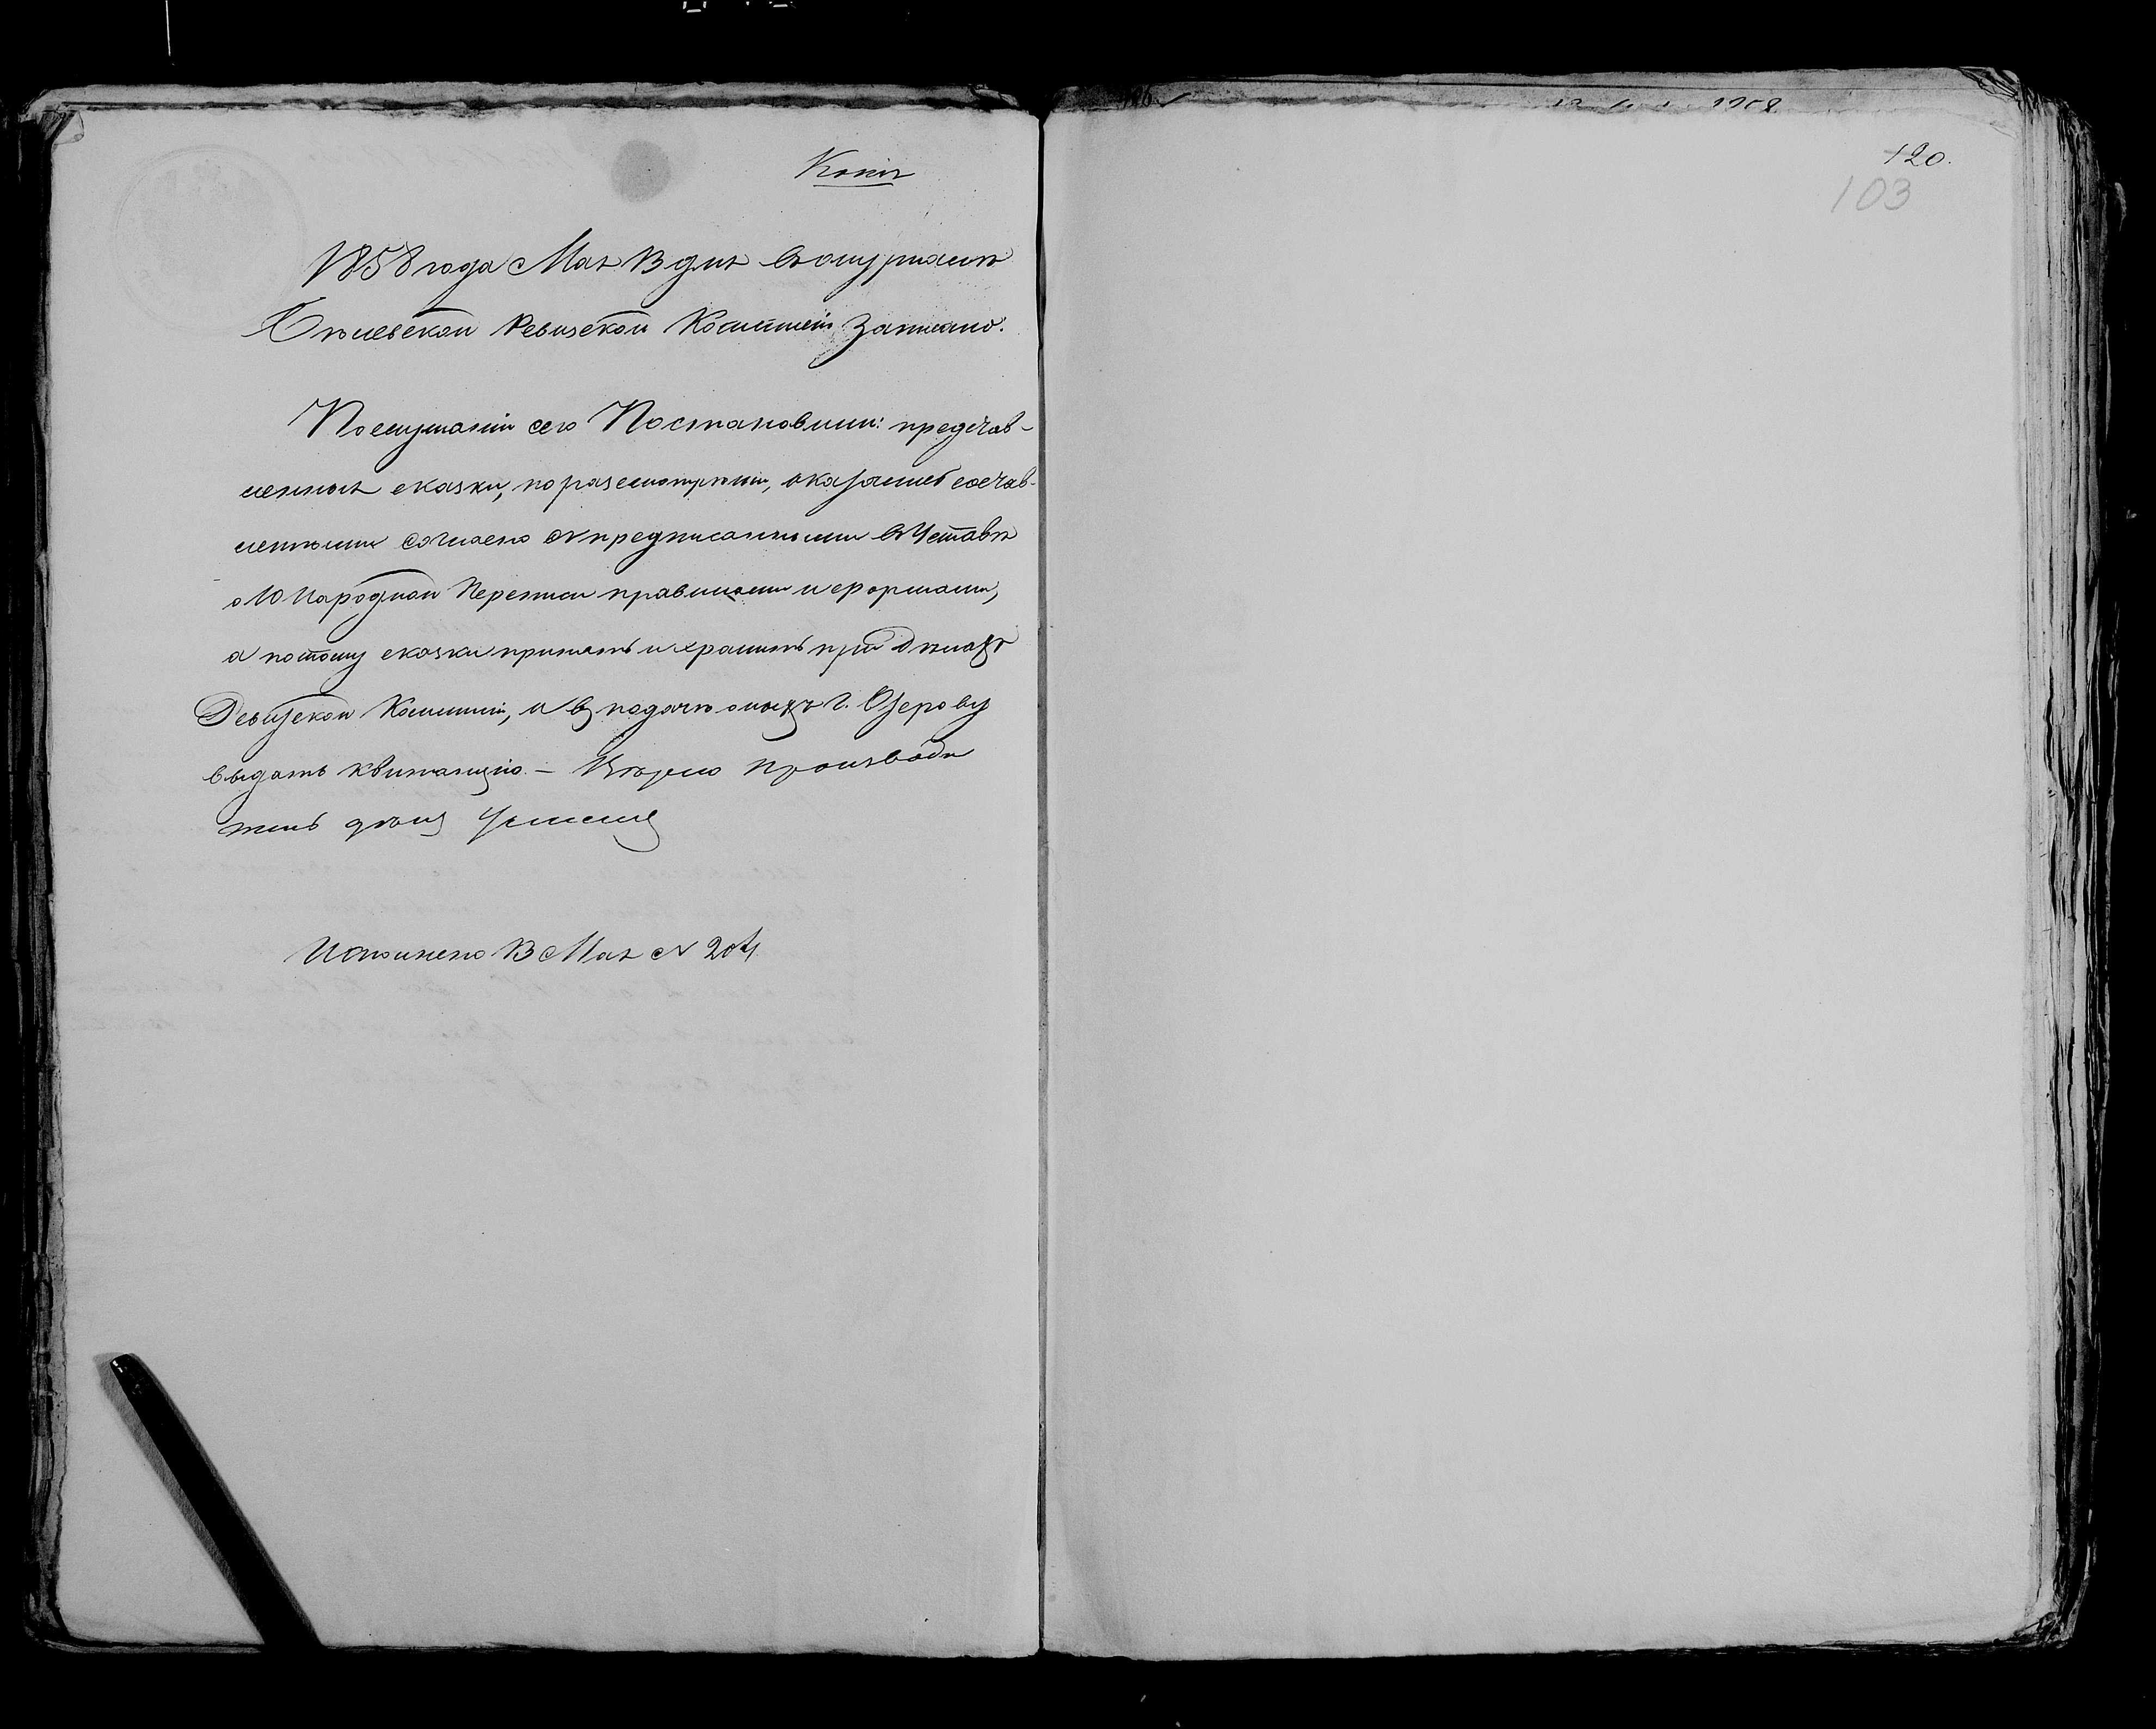 Копія
1858 года Мая 13 дня въ журналѣ
Бѣлевской Ревизской Коммисіи записано.
По слушаніи сего Постановили: представ-
ленныя сказки, по разсмотрѣніи, оказались состав-
ленными согласно съ предписанными въ Уставѣ
о 10 Народной Переписи правилами и формами,
а потому сказки принять и хранить при дѣлахъ
Ревизской Коммисіи, и въ подачѣ оныхъ г. Озерову
выдать квитанцію. – Вѣрно Производи
тель дѣлъ
Исполнено 13 Мая № 204.
120.
103